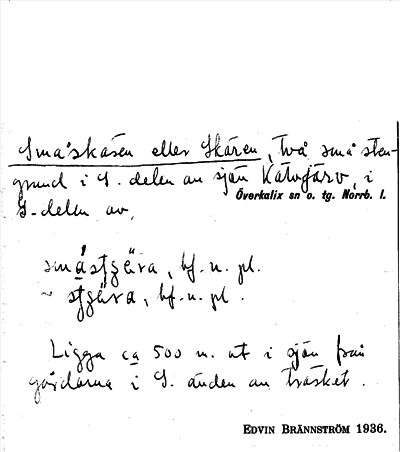 Småskären eller Skären, två små sten-
grund i S. delen av sjön Kälvjärv, i
Överkalix sn o. tg. Norrb. l.
S-delen av,
småstʒæra, bf. n. pl.
~ stʒæra, bf. n. pl.
Ligga ca 500 m. ut i sjön från
gårdarna i S. änden av träsket.
EDVIN BRÄNNSTRÖM 1936.